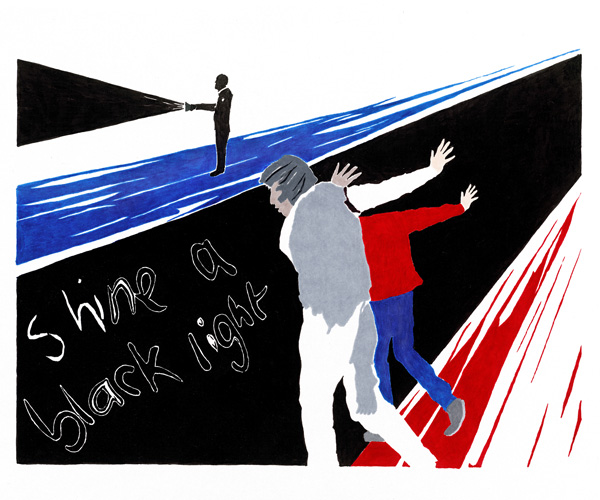 shine a
black light